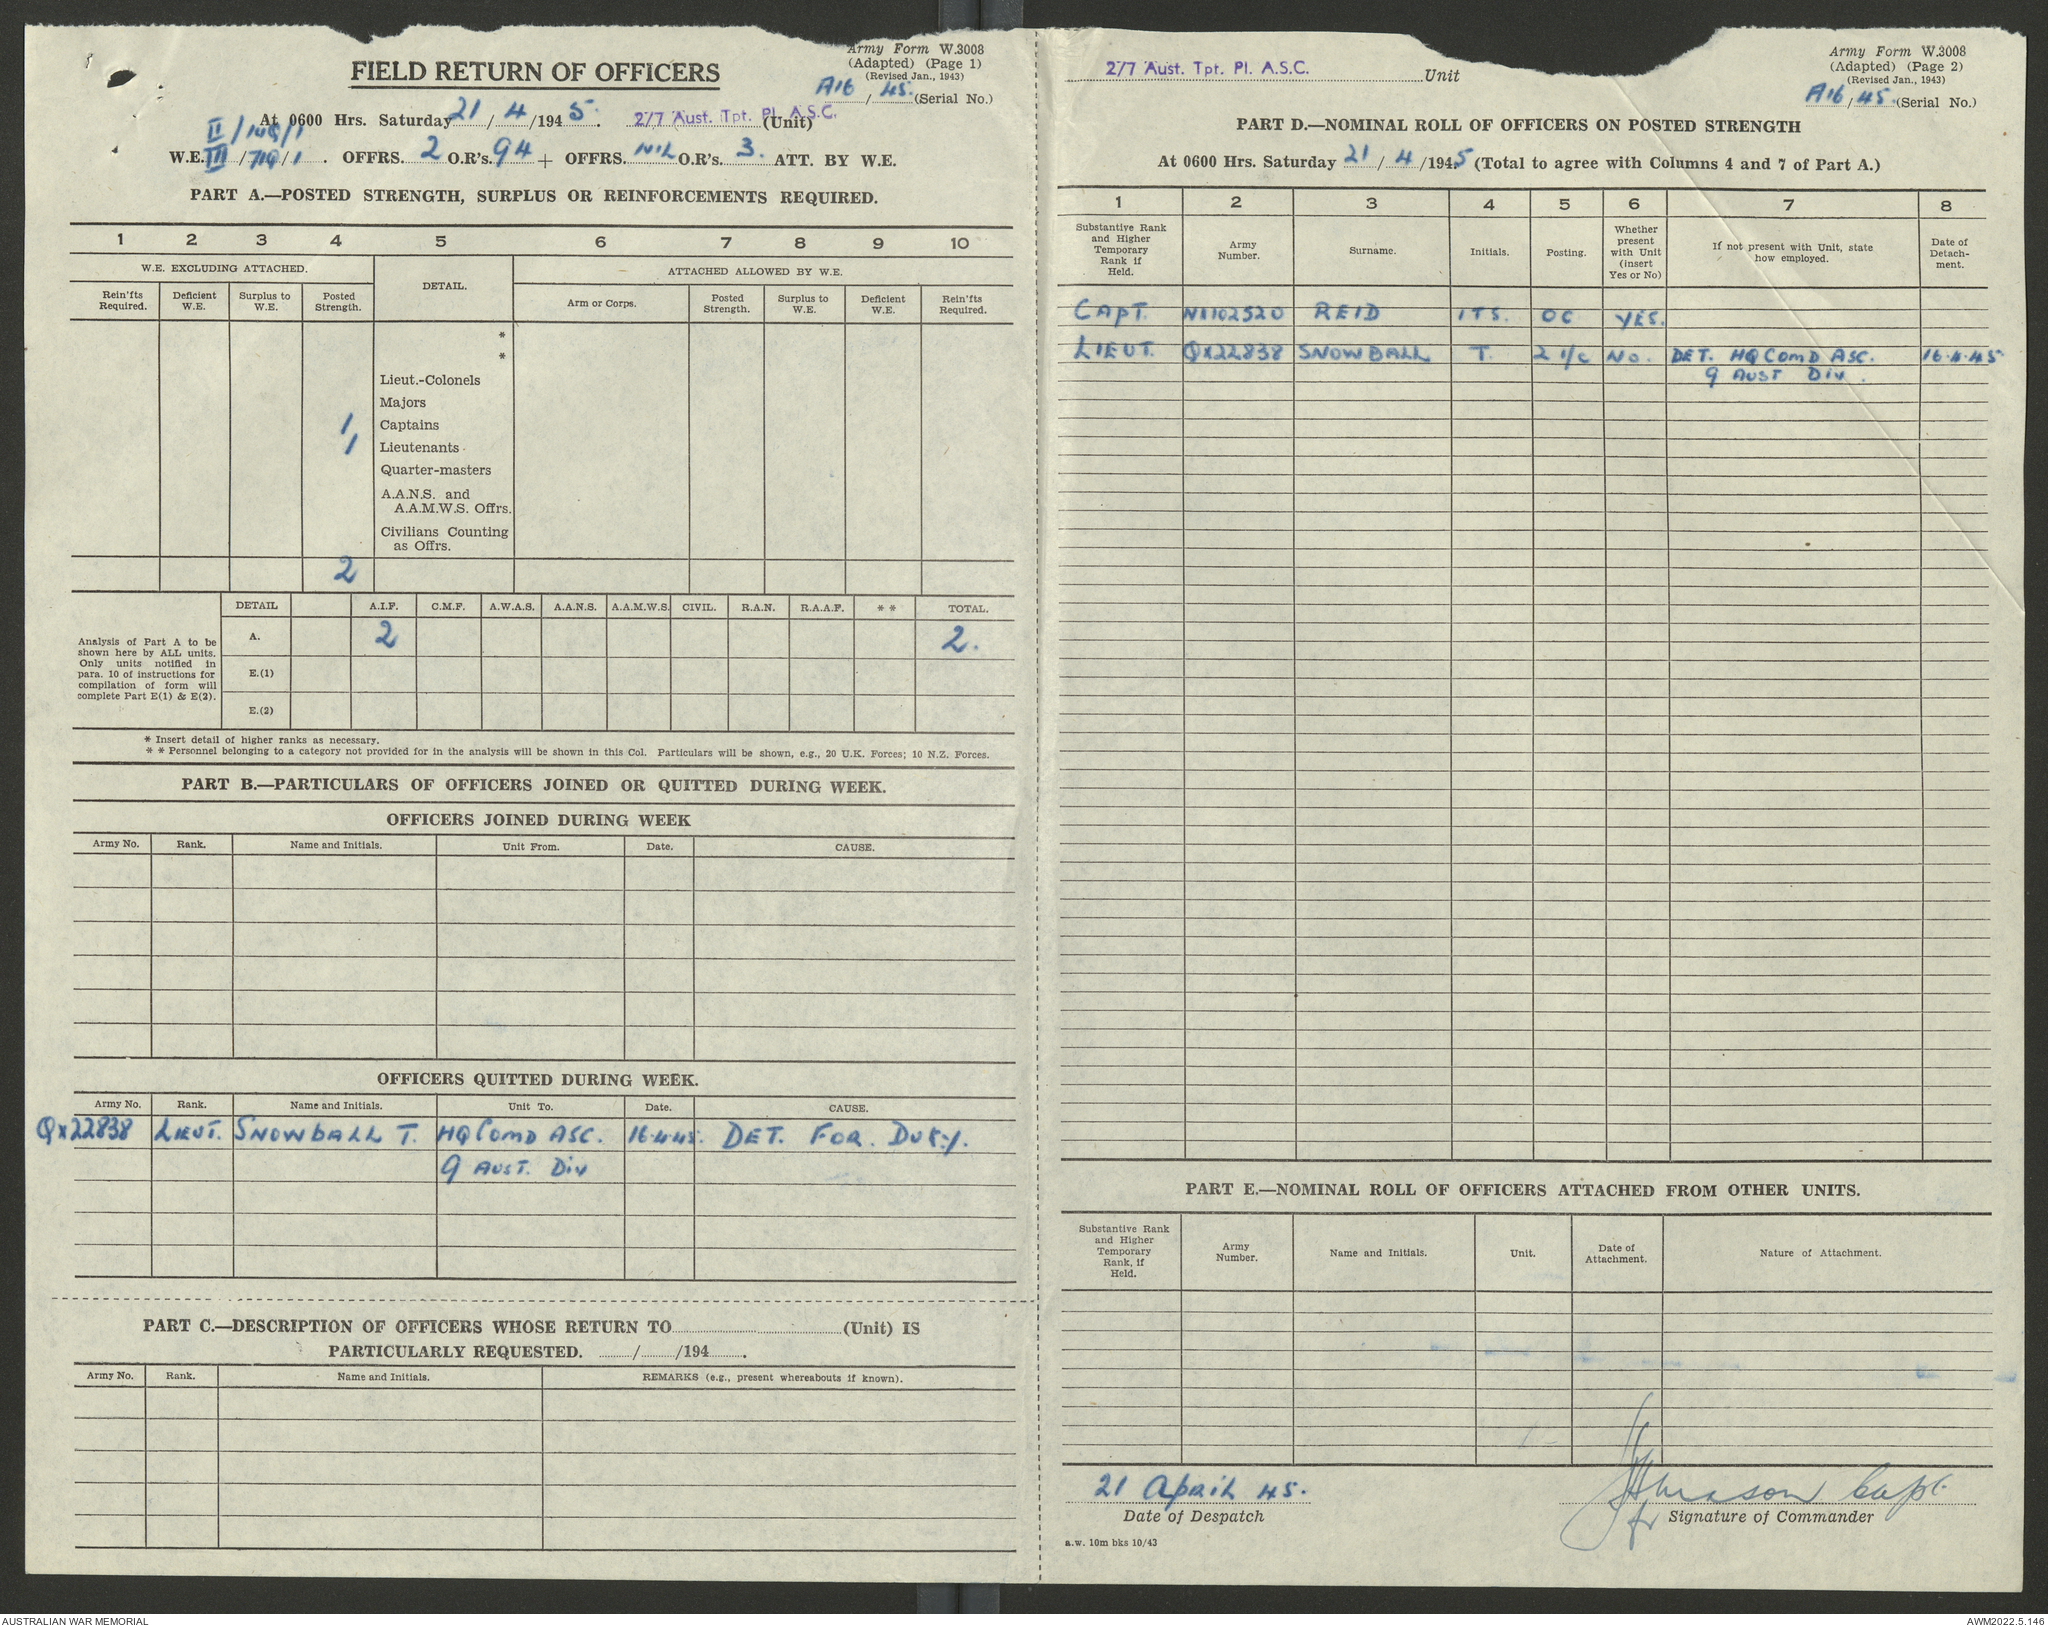 Army Form W.3008
(Adapted) (Page 1)
(Revised Jan., 1943)
FIELD RETURN OF OFFICERS
A16 / 45. (Serial No.)
At 0600 Hrs. Saturday 21 / 4 /1945. 2/7 Aust. Tpt. Pl. A.S.C. (Unit)
II / /1
W.E. III / /1. OFFRS. 2 O.R's. 94 + OFFRS. NIL O.R's. 3. ATT. BY W.E.
PART A.—POSTED STRENGTH, SURPLUS OR REINFORCEMENTS REQUIRED.
1 2 3 4 5 6 7 8 9 10
W.E. EXCLUDING ATTACHED. DETAIL. ATTACHED ALLOWED BY W.E.
Rein'fts Required. Deficient W.E. Surplus to W.E. Posted Strength. Arm or Corps. Posted Strength. Surplus to W.E. Deficient W.E. Rein'fts Required.
*
*
Lieut.-Colonels
Majors
1 Captains
1 Lieutenants
Quarter-masters
A.A.N.S. and
A.A.M.W.S. Offrs.
Civilians Counting
as Offrs.
2
DETAIL A.I.F. C.M.F. A.W.A.S. A.A.N.S. A.A.M.W.S. CIVIL. R.A.N. R.A.A.F. * * TOTAL.
Analysis of Part A to be
shown here by ALL units.
Only units notified in
para. 10 of instructions for
compilation of form will
complete Part E(1) & E(2).
A. 2 2.
E.(1)
E.(2)
* Insert detail of higher ranks as necessary.
* * Personnel belonging to a category not provided for in the analysis will be shown in this Col. Particulars will be shown, e.g., 20 U.K. Forces; 10 N.Z. Forces.
PART B.—PARTICULARS OF OFFICERS JOINED OR QUITTED DURING WEEK.
OFFICERS JOINED DURING WEEK
Army No. Rank. Name and Initials. Unit From. Date. CAUSE.
OFFICERS QUITTED DURING WEEK.
Army No. Rank. Name and Initials. Unit To. Date. CAUSE.
QX22838 LIEUT. SNOWBALL T. HQ COMD ASC. 16.4.45. DET. FOR. DUTY.
9 AUST. DIV
PART C.—DESCRIPTION OF OFFICERS WHOSE RETURN TO (Unit) IS
PARTICULARLY REQUESTED. / /194 .
Army No. Rank. Name and Initials. REMARKS (e.g., present whereabouts if known).
Army Form W.3008
(Adapted) (Page 2)
(Revised Jan., 1943)
2/7 Aust. Tpt. Pl. A.S.C. Unit
A16 / 45. (Serial No.)
PART D.—NOMINAL ROLL OF OFFICERS ON POSTED STRENGTH
At 0600 Hrs. Saturday 21 / 4 /1945 (Total to agree with Columns 4 and 7 of Part A.)
1 2 3 4 5 6 7 8
Substantive Rank and Higher Temporary Rank if Held. Army Number. Surname. Initials. Posting. Whether present with Unit (insert Yes or No) If not present with Unit, state how employed. Date of Detachment.
CAPT. NX102520 REID ITS. OC YES.
LIEUT. QX22838 SNOWBALL T. 2 I/C NO. DET. HQ COMD ASC. 16.4.45
9 AUST DIV.
PART E.—NOMINAL ROLL OF OFFICERS ATTACHED FROM OTHER UNITS.
Substantive Rank and Higher Temporary Rank, if Held. Army Number. Name and Initials. Unit. Date of Attachment. Nature of Attachment.
21 April 45.
Capt.
Date of Despatch
for Signature of Commander
a.w. 10m bks 10/43
AUSTRALIAN WAR MEMORIAL
AWM2022.5.146